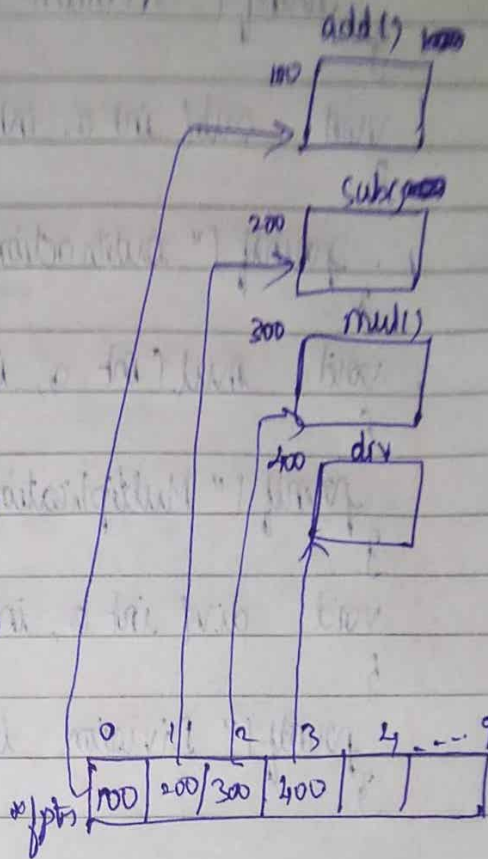 add()
100
sub()
200
300 mul()
400 div
0 1 2 3 4 ----- 9
*fptr 100 200 300 400